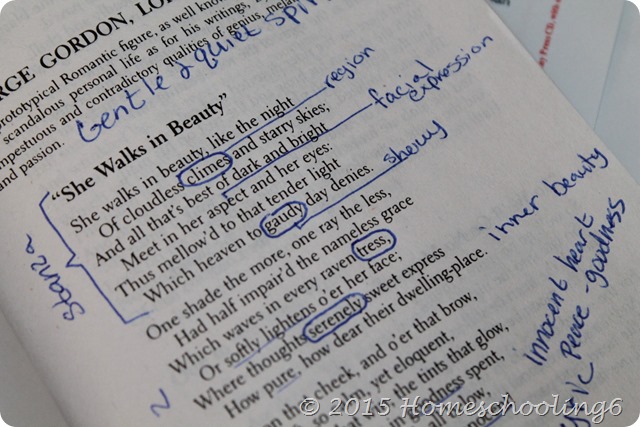 RGE GORDON, LO
prototypical Romantic figure, as well know
scandalous personal life as for his writings,
mpestuous and contradictory qualities of genius, mela
and passion.
Gentle & quiet spiri
"She Walks in Beauty"
She walks in beauty, like the night
Of cloudless climes and starry skies;
And all that's best of dark and bright
Meet in her aspect and her eyes:
Thus mellow'd to that tender light
Which heaven to gaudy day denies.
region
facial
expression
showy
Stanza
One shade the more, one ray the less,
Had half impair'd the nameless grace
Which waves in every raven tress,
Or softly lightens o'er her face;
Where thoughts serenely sweet express
How pure, how dear their dwelling-place.
inner beauty
innocent heart
peace - goodness
that cheek, and o'er that brow,
so calm, yet eloquent,
the tints that glow,
spent,
© 2015 Homeschooling6